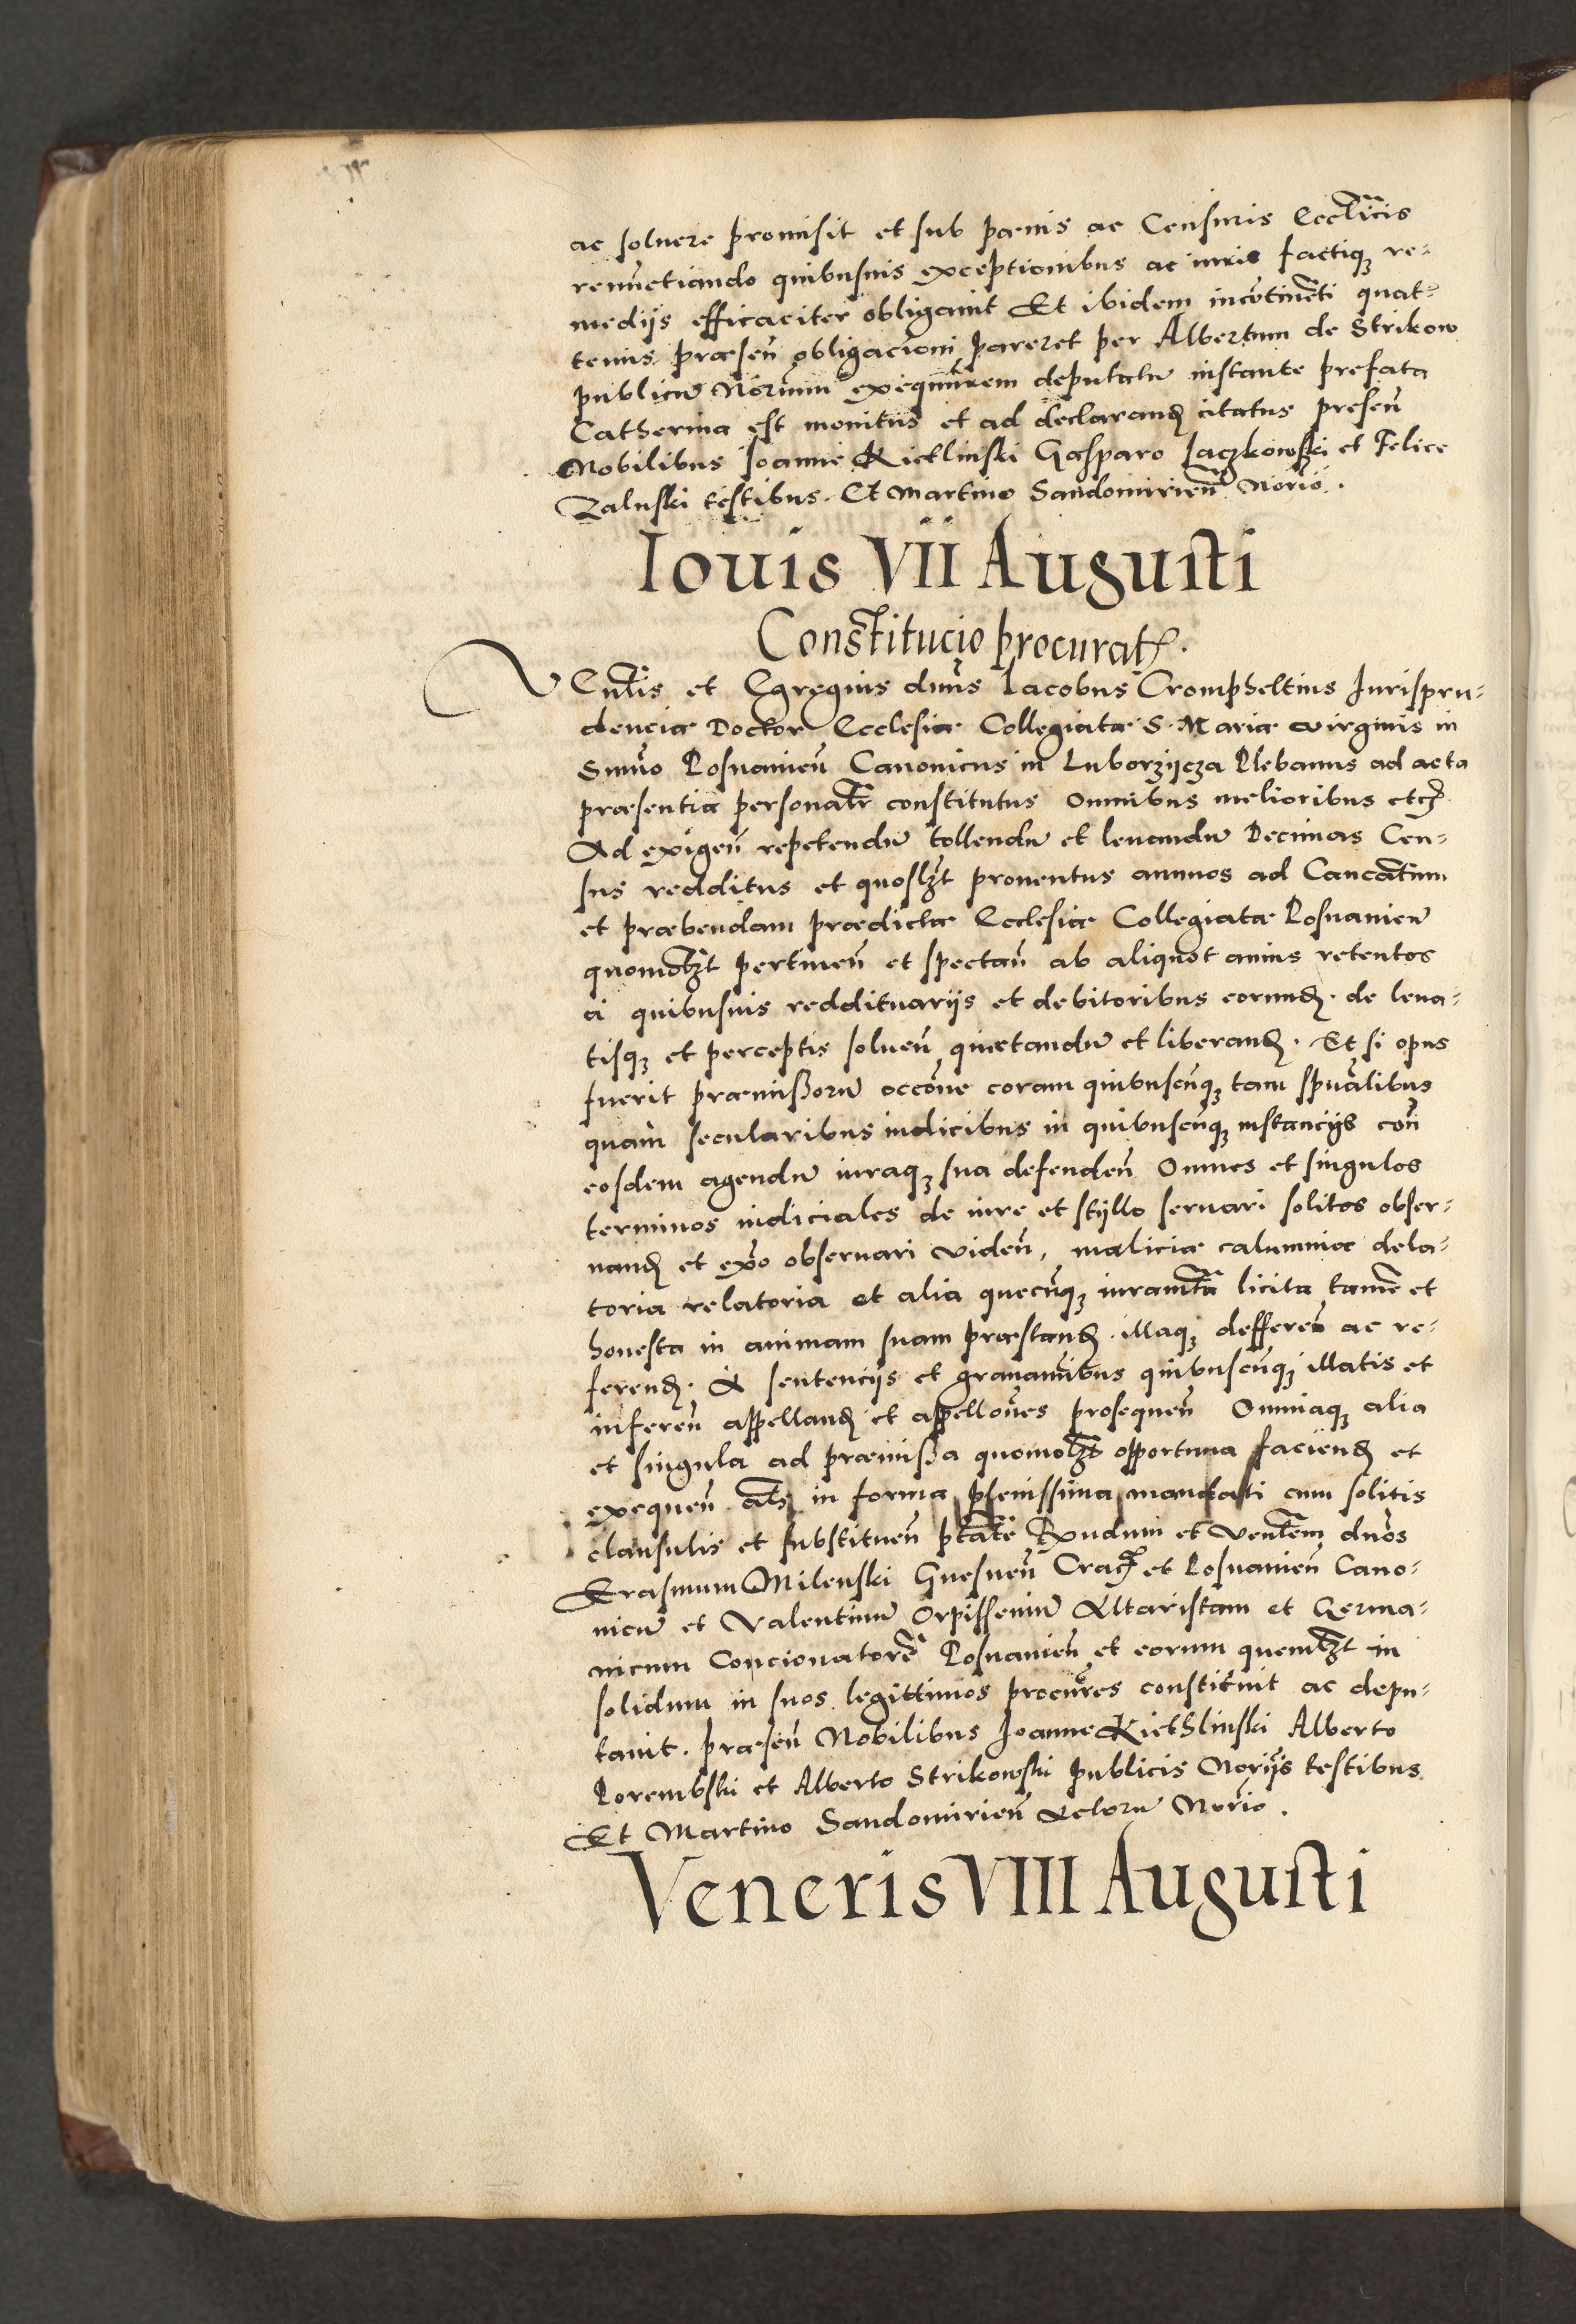 ac soluere promisit et sub pœnis ac Censuris Eccl̃icis
renũctiando quibusuis exceptionibus ac iuris factiq̨ re-
medijs efficaciter obligauit Et ibidem incõtinẽti quat-
tenus præseñ obligacioni pareret per Albertum de Strikow
publicũ Nõrium exequutorem deputatũ instante prefata
Catherina est monitus et ad declaranď citatus preseñ
Nobilibus Joanne Kietlinski Gasparo Jaczkowski et Felice
Zaluski testibus. Et Martino Sandomirieñ Nõrio.
Iouis VII Augusti
Constitucio procurat̃.
VEnl̃is et Egregius dñus Iacobus Crompheltius Jurispru-
denciæ Doctor Ecclesiæ Collegiatæ S. Mariæ virginis in
Summo Posnanieñ Canonicus in Luborzijcza Plebanus ad acta
præsentia personalr̃ constitutus Omnibus melioribus etc̃
Ad exigeñ repetendũ tollendũ et leuandũ Decimas Cen-
sus redditus et quoslz̃t prouentus annuos ad Canc̃atum
et præbendam prædictæ Ecclesiæ Collegiatæ Posnanieñ
quomolz̃t pertineñ et spectañ ab aliquot annis retentos
a quibusuis reddituarijs et debitoribus eorunď. de leua-
tisq̨ et perceptis solueñ quietandũ et liberanď. Et si opus
fuerit præmissorũ occõne coram quibuscũq̨ tam spũalibus
quam secularibus iudicibus in quibuscũq̨ instancijs coñ
eosdem agendũ iuraq̨ sua defendeñ Omnes et singulos
terminos iudiciales de iure et stijllo seruari solitos obser-
uanď et ex̃o obseruari videñ, maliciæ calumniæ dela-
toria relatoria et alia quecũq̨ iuramt̃a licita tamẽ et
honesta in animam suam præstanď. illaq̨ deffereñ ac re-
ferenď. A sentencijs et grauamĩbus quibuscũq̨ illatis et
infereñ appellanď et appellões prosequeñ Omniaq̨ alia
et singula ad præmissa quomolz̃t opportuna facienď et
exequeñ al̃s in forma plenissima mandati cum solitis
clausulis et substitueñ pt̃atẽ Rx̃ndum et Venl̃em dños
Erasmum Milenski Gnesneñ Crac̃ et Posnanieñ Cano-
nicũ et Valentinũ Orpissenium Altaristam et Germa-
nicum Concionatorẽ Posnanieñ et eorum quemlz̃t in
solidum in suos legittimos procũres constituit ac depu-
tauit. præseñ Nobilibus Joanne Kiethlinski Alberto
Porembski et Alberto Strikowski publicis Nõrijs testibus.
Et Martino Sandomirieñ Actorũ Nõrio.
Veneris VIII Augusti